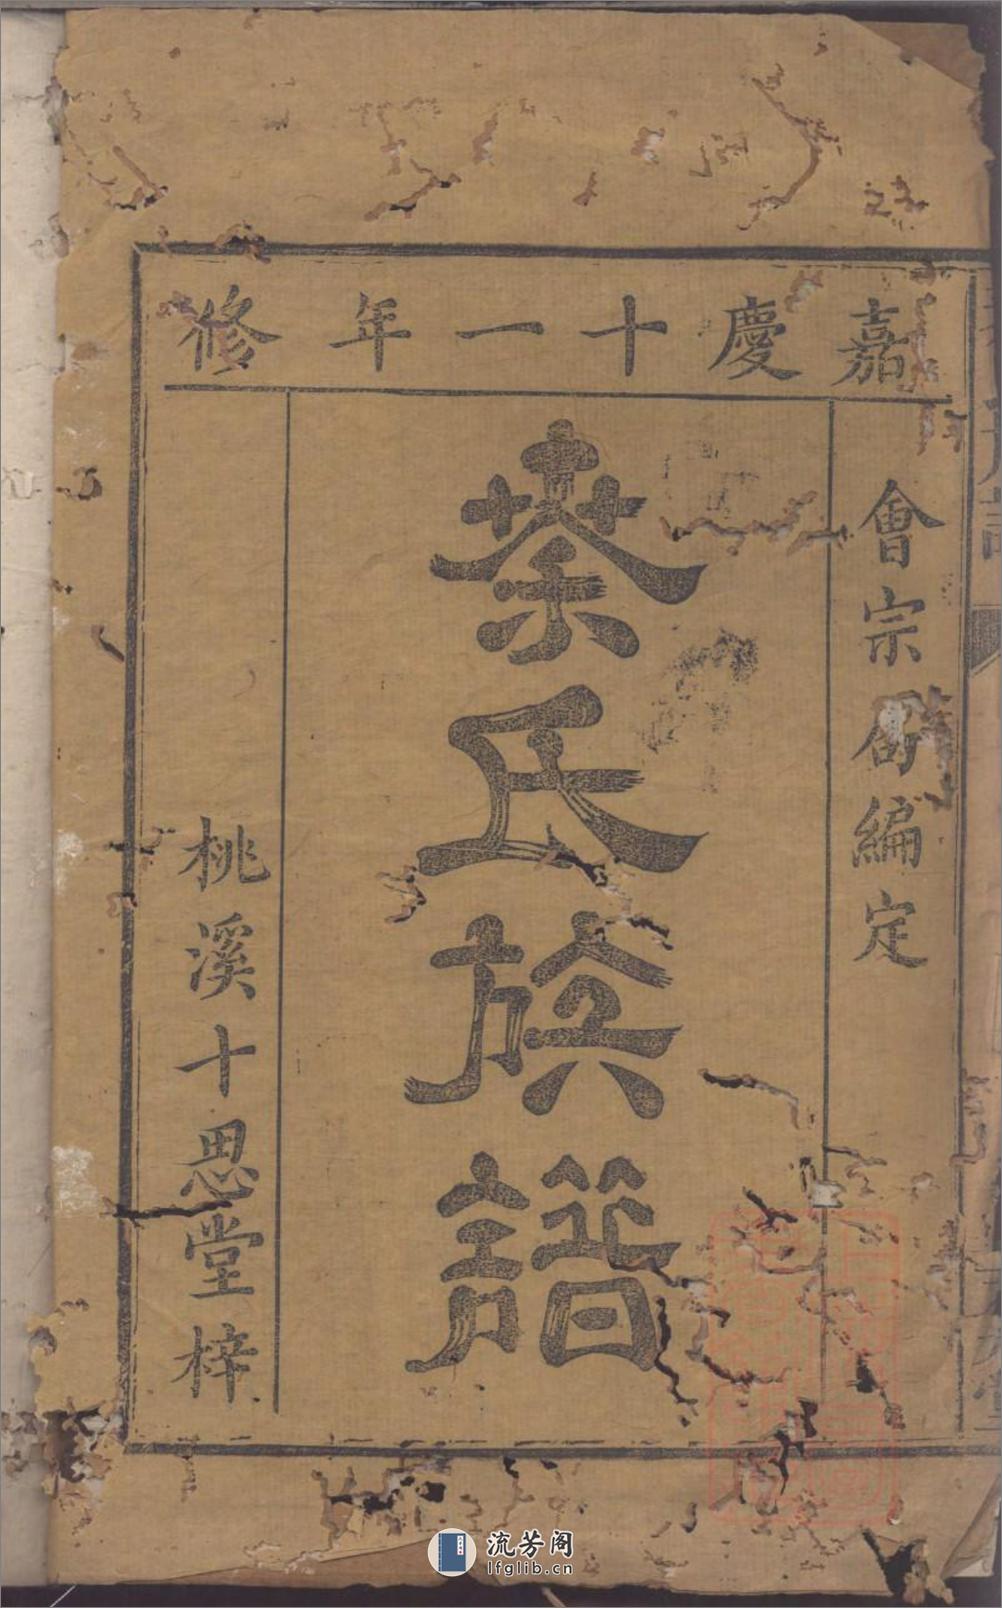 嘉慶十一年修
會宗局編定
氏族譜
桃溪十思堂梓
流芳阁
lfglib.cn